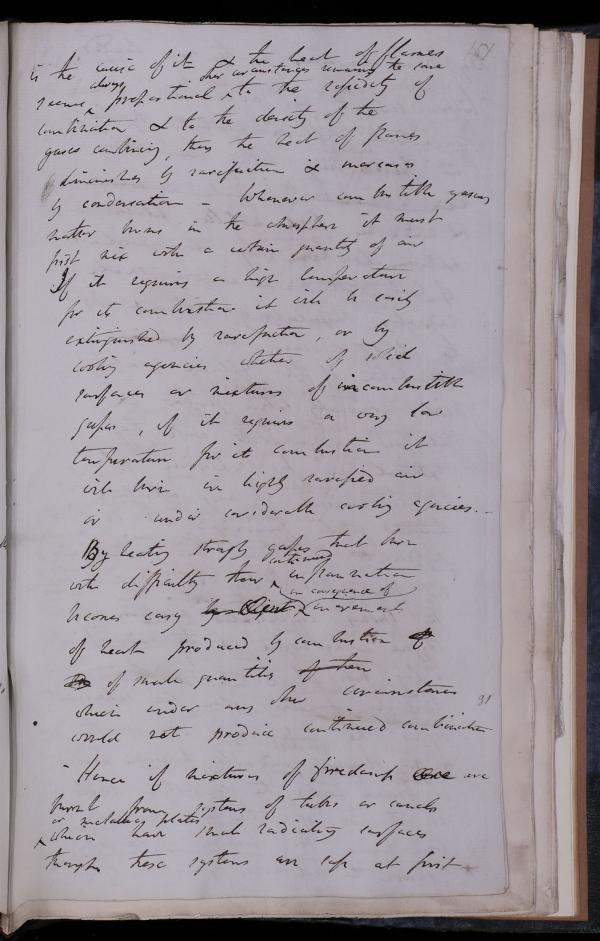 151
is the cause of it & the heat of flames
other circumstances remaining the same
always
seems proportional to the rapidity of
combination & to the density of the
gases combining, thus the heat of flames
diminishes by rarefaction & increases
by condensation - Whenever combustible gaseous
matter burns in the atmosphere it must
first mix with a certain quantity of air
If it requires a high temperature
for its combustion it will be easily
extinguished by rarefaction, or by
cooling agencies whether of solid
surfaces or mixtures of incombustible
gases, if it requires a very low
temperature for its combustion it
will burn in highly rarefied air
or under considerable cooling agencies. -
By heating strongly gases that burn
continued
with difficulty their inflammation
in consequence of
becomes easy by increment
of heat produced by combustion of
of small quantities of them
which under any other circumstances
31
would not produce continued combination
- Hence if mixtures of firedamp are are
burnt from systems of tubes or canals
or metallic plates
which have small radiating surfaces
though these systems are safe at first